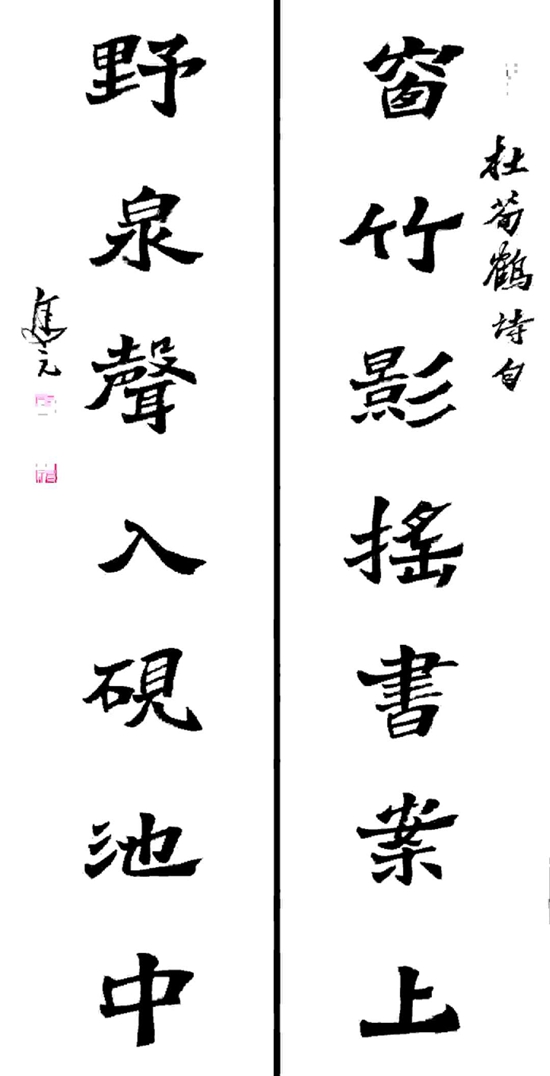 杜荀鶴詩句
窗竹影搖書案上
野泉聲入硯池中
元